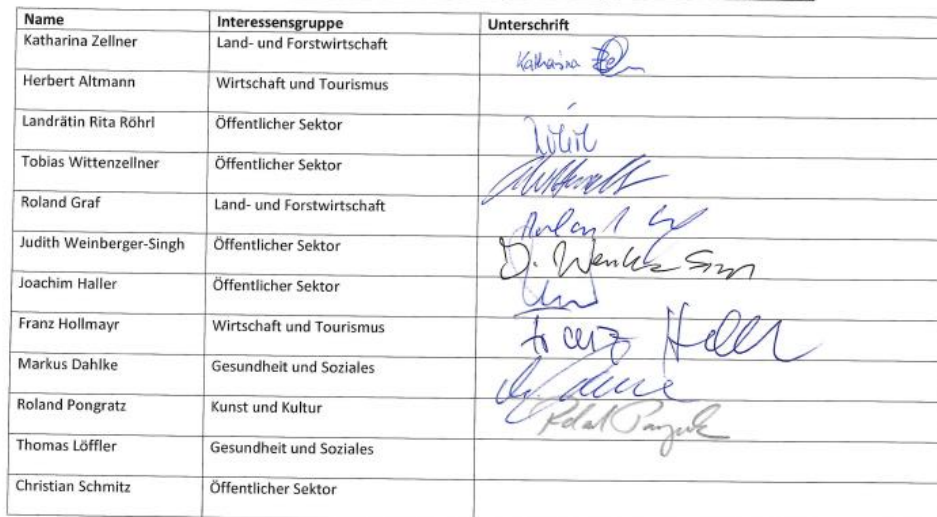 Name Interessensgruppe Unterschrift
Katharina Zellner Land- und Forstwirtschaft Katharina
Herbert Altmann Wirtschaft und Tourismus
Landrätin Rita Röhrl Öffentlicher Sektor
Tobias Wittenzellner Öffentlicher Sektor
Roland Graf Land- und Forstwirtschaft
Judith Weinberger-Singh Öffentlicher Sektor
Joachim Haller Öffentlicher Sektor
Franz Hollmayr Wirtschaft und Tourismus Franz
Markus Dahlke Gesundheit und Soziales
Roland Pongratz Kunst und Kultur
Thomas Löffler Gesundheit und Soziales
Christian Schmitz Öffentlicher Sektor